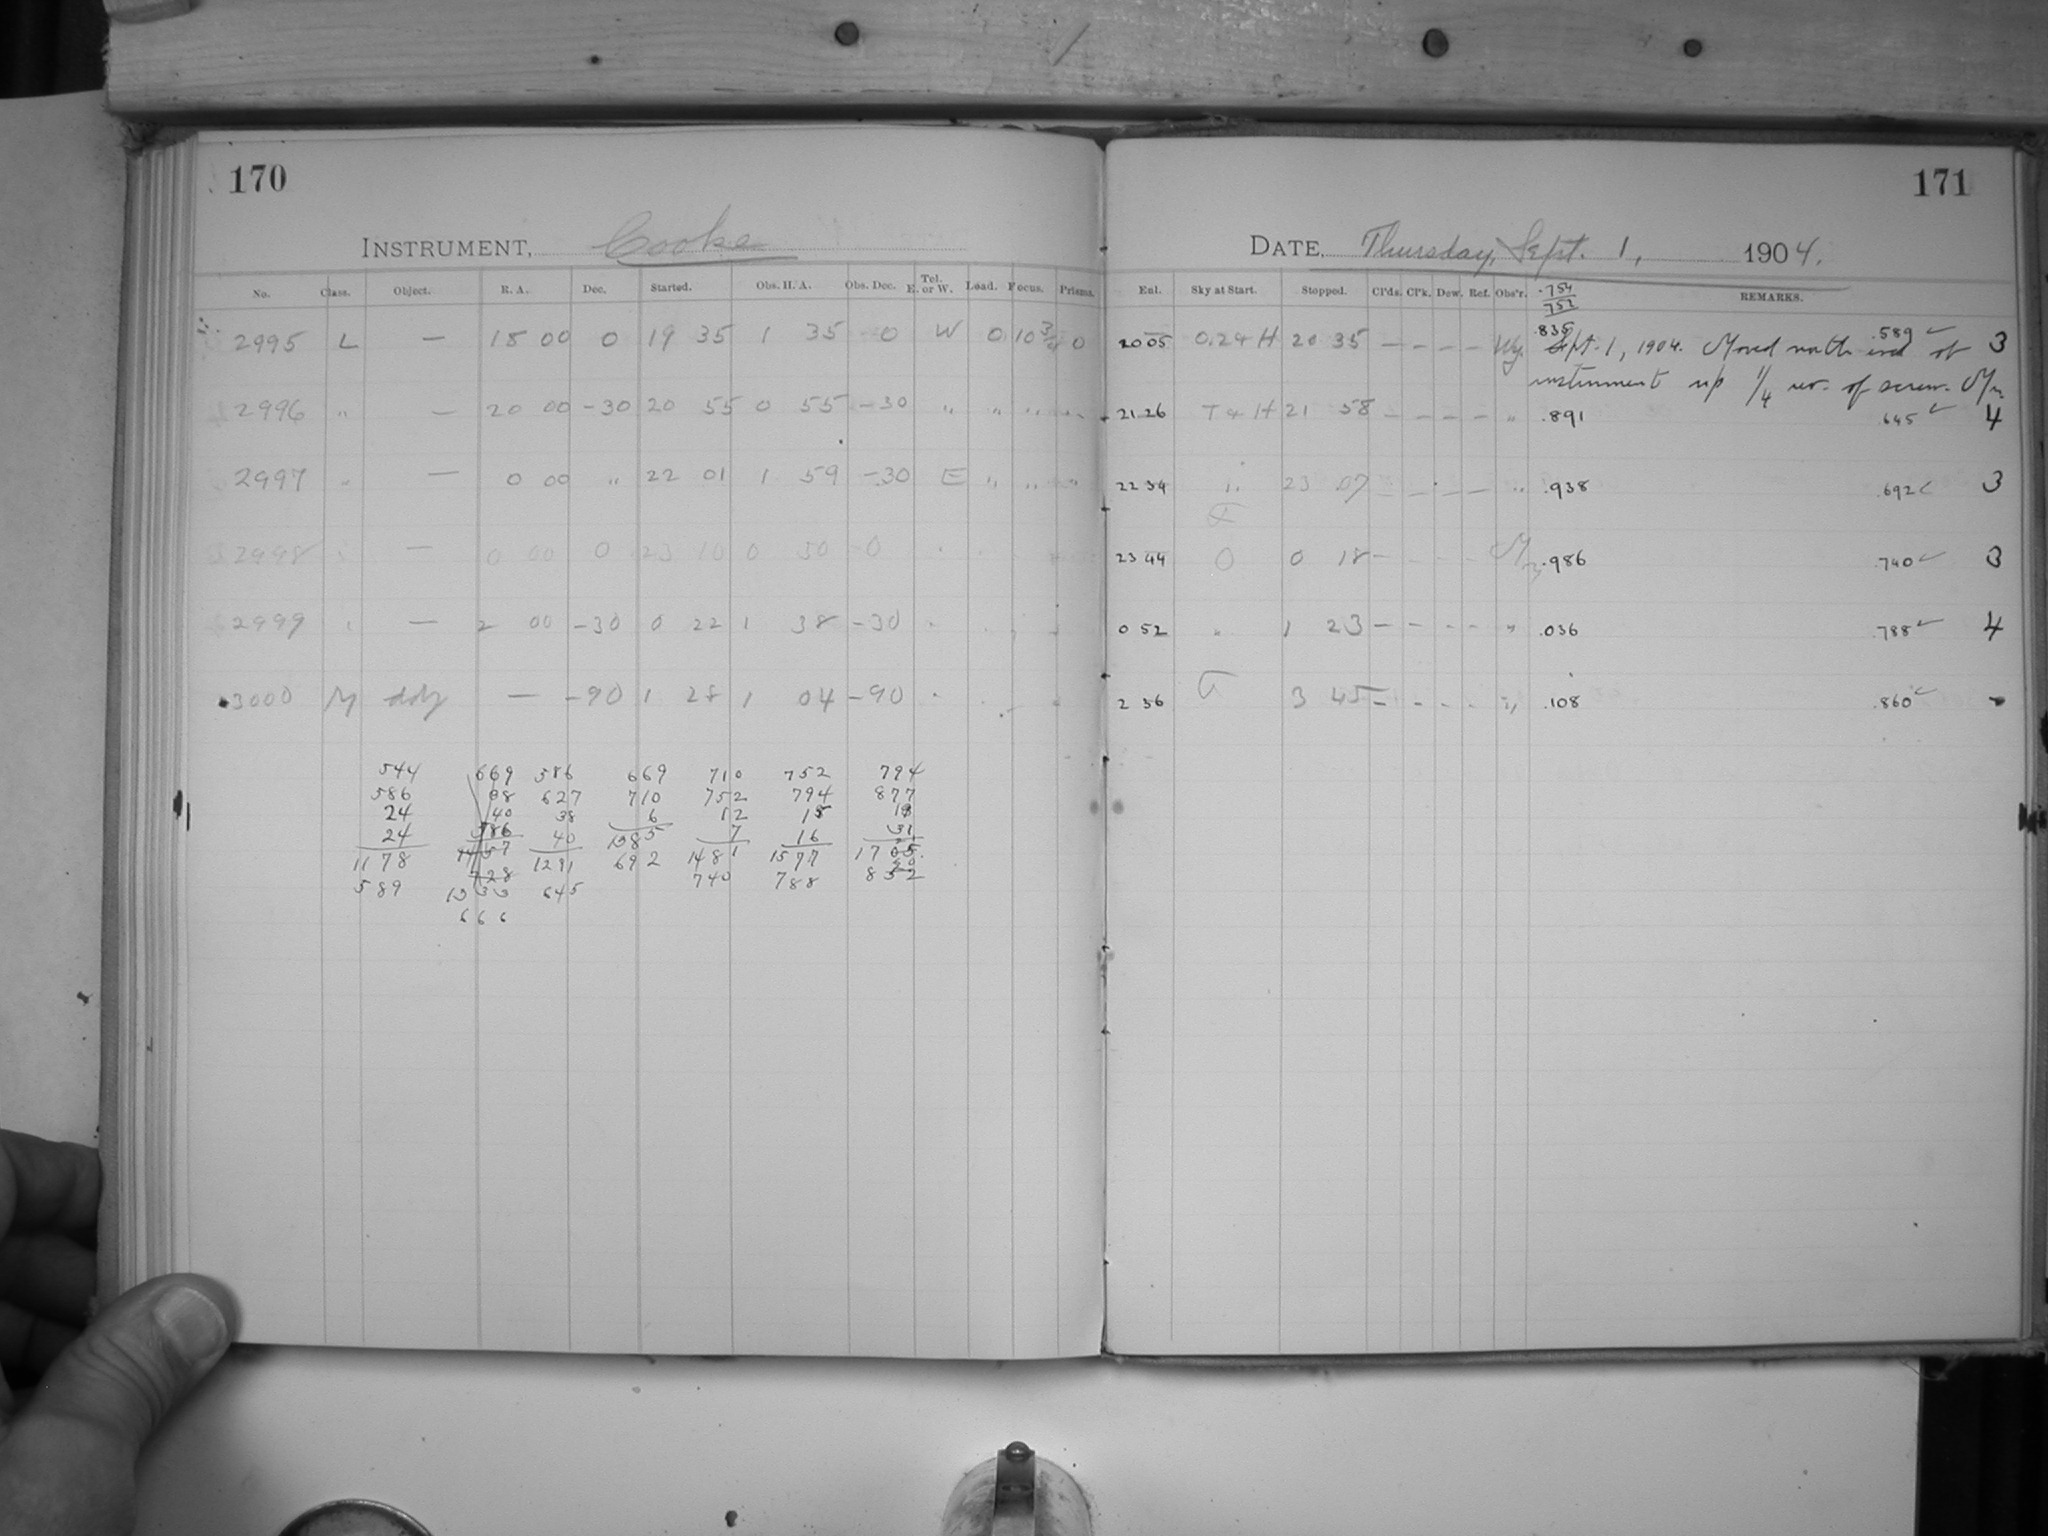 170
INSTRUMENT, Cooke
No. Class. Object. R. A. Dec. Started. Obs. H. A. Obs. Dec. Tel. E. or W. Load. Focus. Prisms.
2995 L — 18 00 0 19 35 1 35 0 W 0 10 3/4 0
2996 " — 20 00 -30 20 55 0 55 -30 " " " "
2997 " — 0 00 " 22 01 1 59 -30 E " " "
2998 — 0 00 0 23 10 0 50 0
2999 — 2 00 -30 0 22 1 38 -30
3000 M — -90 1 28 1 04 -90
544 669 586 669 710 752 794
586 88 627 710 752 794 877
24 40 38 6 12 15
24 786 40 1385 7 16 31
1178 1457 1291 692 1481 1577
589 728 645 740 788 852
1333
666
171
DATE, Thursday, Sept. 1, 1904.
Enl. Sky at Start. Stopped. Cl'ds. Cl'k. Dew. Ref. Obs'r. REMARKS.
.754
752
.835 .589
20 05 0.24 H 20 35 — — — — Wy. Sept. 1, 1904. Moved north end of 3
instrument up 1/4 rev. of screw.
21 26 T & H 21 58 — — — — " .891 .645 4
22 34 " 23 07 — — — — " .938 .692 3
23 44 0 0 18 — - - - .986 .740 3
0 52 " 1 23 — - - - " .036 .788 4
2 36 3 45 — - - - " .108 .860 -